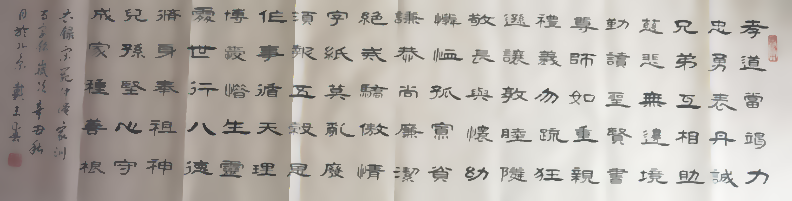 孝道當竭力
忠勇表丹誠
兄弟互相助
慈悲無邊境
勤讀聖賢書
尊師如重親
禮義勿疏狂
遜讓敦睦隣
敬長與懷幼
憐恤孤寡貧
謙恭尚廉潔
絕戒驕傲情
字紙莫亂廢
須報五穀恩
作事循天理
博愛惜生靈
處世行八德
脩身奉祖神
兒孫堅心守
成家種善根
錄宋范仲淹家訓
百字銘歲次辛丑秋
月於北京